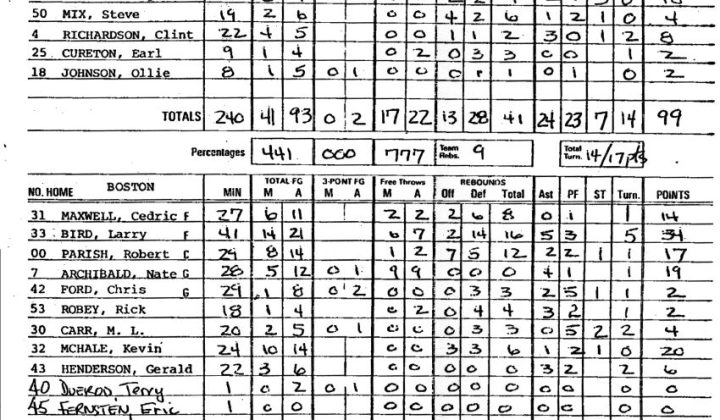 50 MIX, Steve 19 2 6 0 0 4 2 6 1 2 1 0 4
4 RICHARDSON, Clint 22 4 5 0 0 1 1 2 3 0 1 2 8
25 CURETON, Earl 9 1 4 0 2 0 3 3 0 0 1 2
18 JOHNSON, Ollie 8 1 5 0 1 0 0 0 1 1 0 1 0 2
TOTALS 240 41 93 0 2 17 22 13 28 41 24 23 7 14 99
Percentages 441 000 777 Team Rebs. 9 Total Turn. 14/17pts
NO. HOME BOSTON MIN TOTAL FG M A 3-POINT FG M A Free Throws M A REBOUNDS Off Def Total Ast PF ST Turn. POINTS
31 MAXWELL, Cedric F 27 6 11 2 2 2 6 8 0 1 1 14
33 BIRD, Larry F 41 14 21 6 7 2 14 16 5 3 5 34
00 PARISH, Robert C 29 8 14 1 2 7 5 12 2 2 1 1 17
7 ARCHIBALD, Nate G 28 5 12 0 1 9 9 0 0 0 4 1 1 19
42 FORD, Chris G 29 1 8 0 2 0 0 0 3 3 2 5 1 1 2
53 ROBEY, Rick 18 1 4 0 2 0 4 4 3 2 1 2
30 CARR, M. L. 20 2 5 0 1 0 0 0 3 3 0 5 2 2 4
32 MCHALE, Kevin 24 10 14 0 0 3 3 6 1 2 1 0 20
43 HENDERSON, Gerald 22 3 6 0 0 0 0 0 3 2 2 6
40 DUEROD, Terry 1 0 2 0 1 0 0 0 0 0 0 0 0 0
45 FERNSTEN, Eric 1 0 0 0 0 0 0 0 0 0 0 0